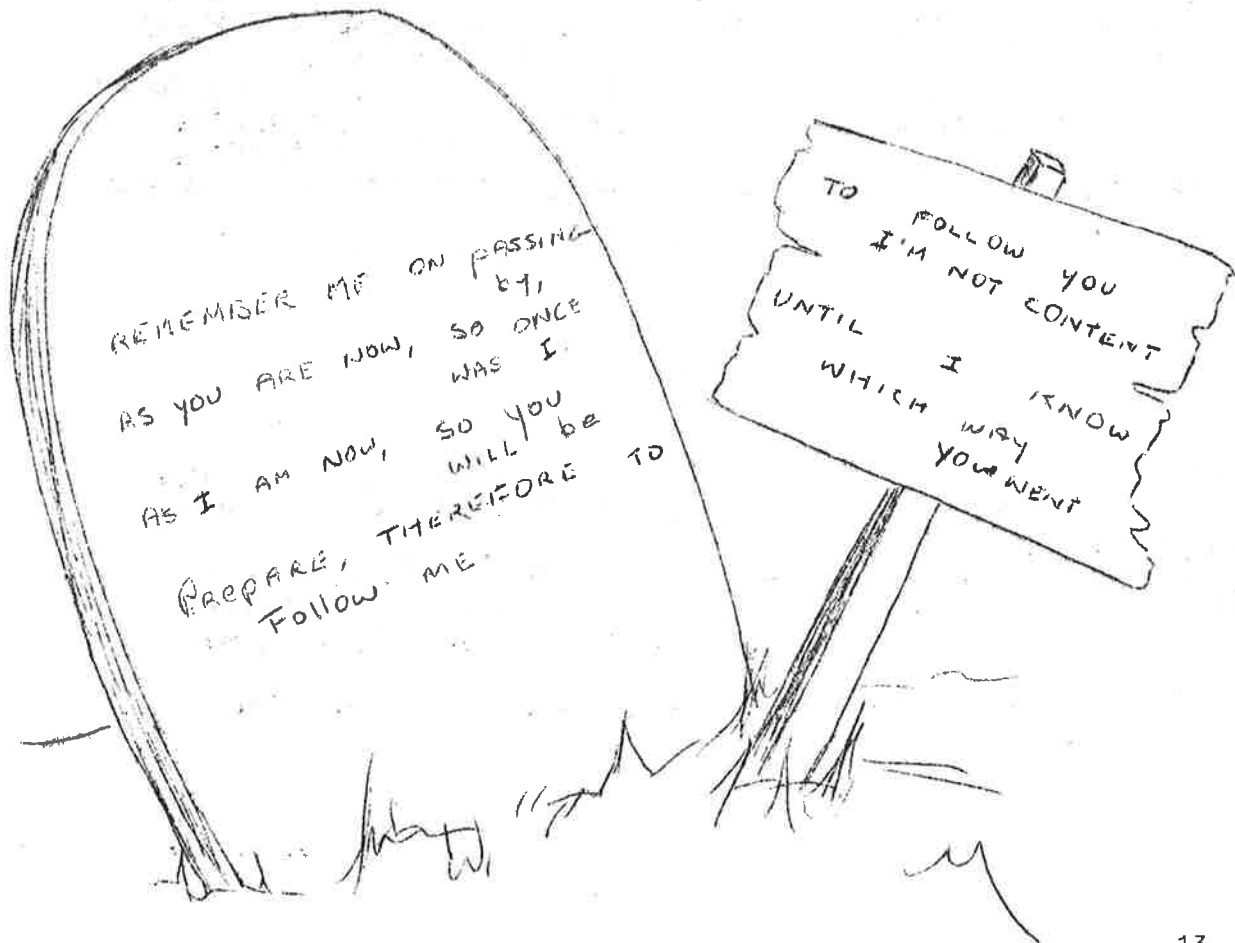 REMEMBER ME ON PASSING
by,
AS YOU ARE NOW, SO ONCE
WAS I.
AS I AM NOW, SO YOU
WILL be
PREPARE, THEREFORE TO
FOLLOW ME
TO FOLLOW YOU
I'M NOT CONTENT
UNTIL I KNOW
WHICH WAY
YOU WENT